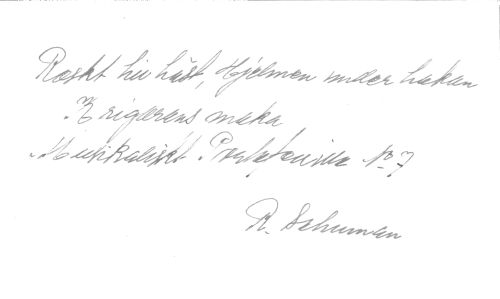 Raskt hin häst, Hjelmen under hakan
Krigarens maka
Musikaliskt Portfeuille No 7
R. Schuman